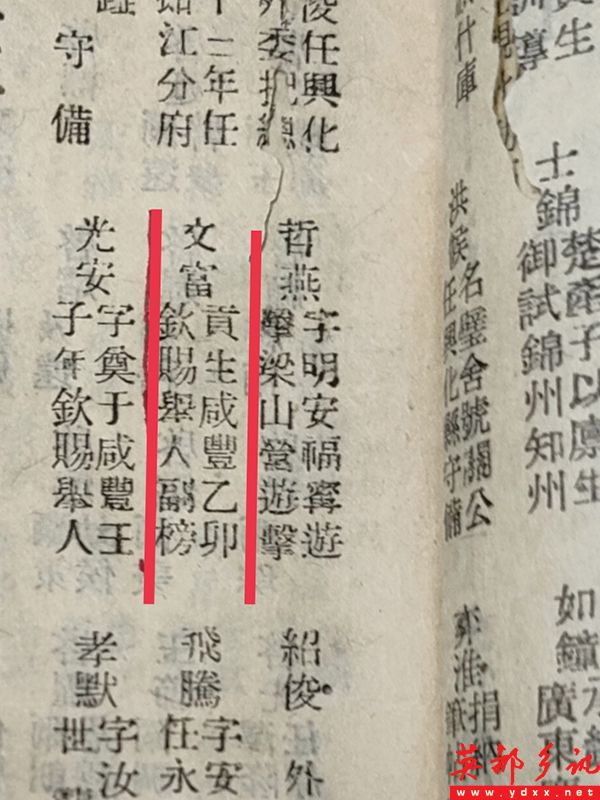 士錦
以廩生
御試錦州知州
洪候
名璧舍號關公
任興化縣守備
廣東
俊任興化
外委把總
十二年任
江分府
守備
哲燕
字明安福寧遊
擊梁山營遊擊
文富
貢生咸豐乙卯
欽賜舉人副榜
光安
字奠于咸豐壬
子年欽賜舉人
紹俊
外
飛騰
字安
任永
孝默
字汝
世
英都乡讯
www.ydxx.net